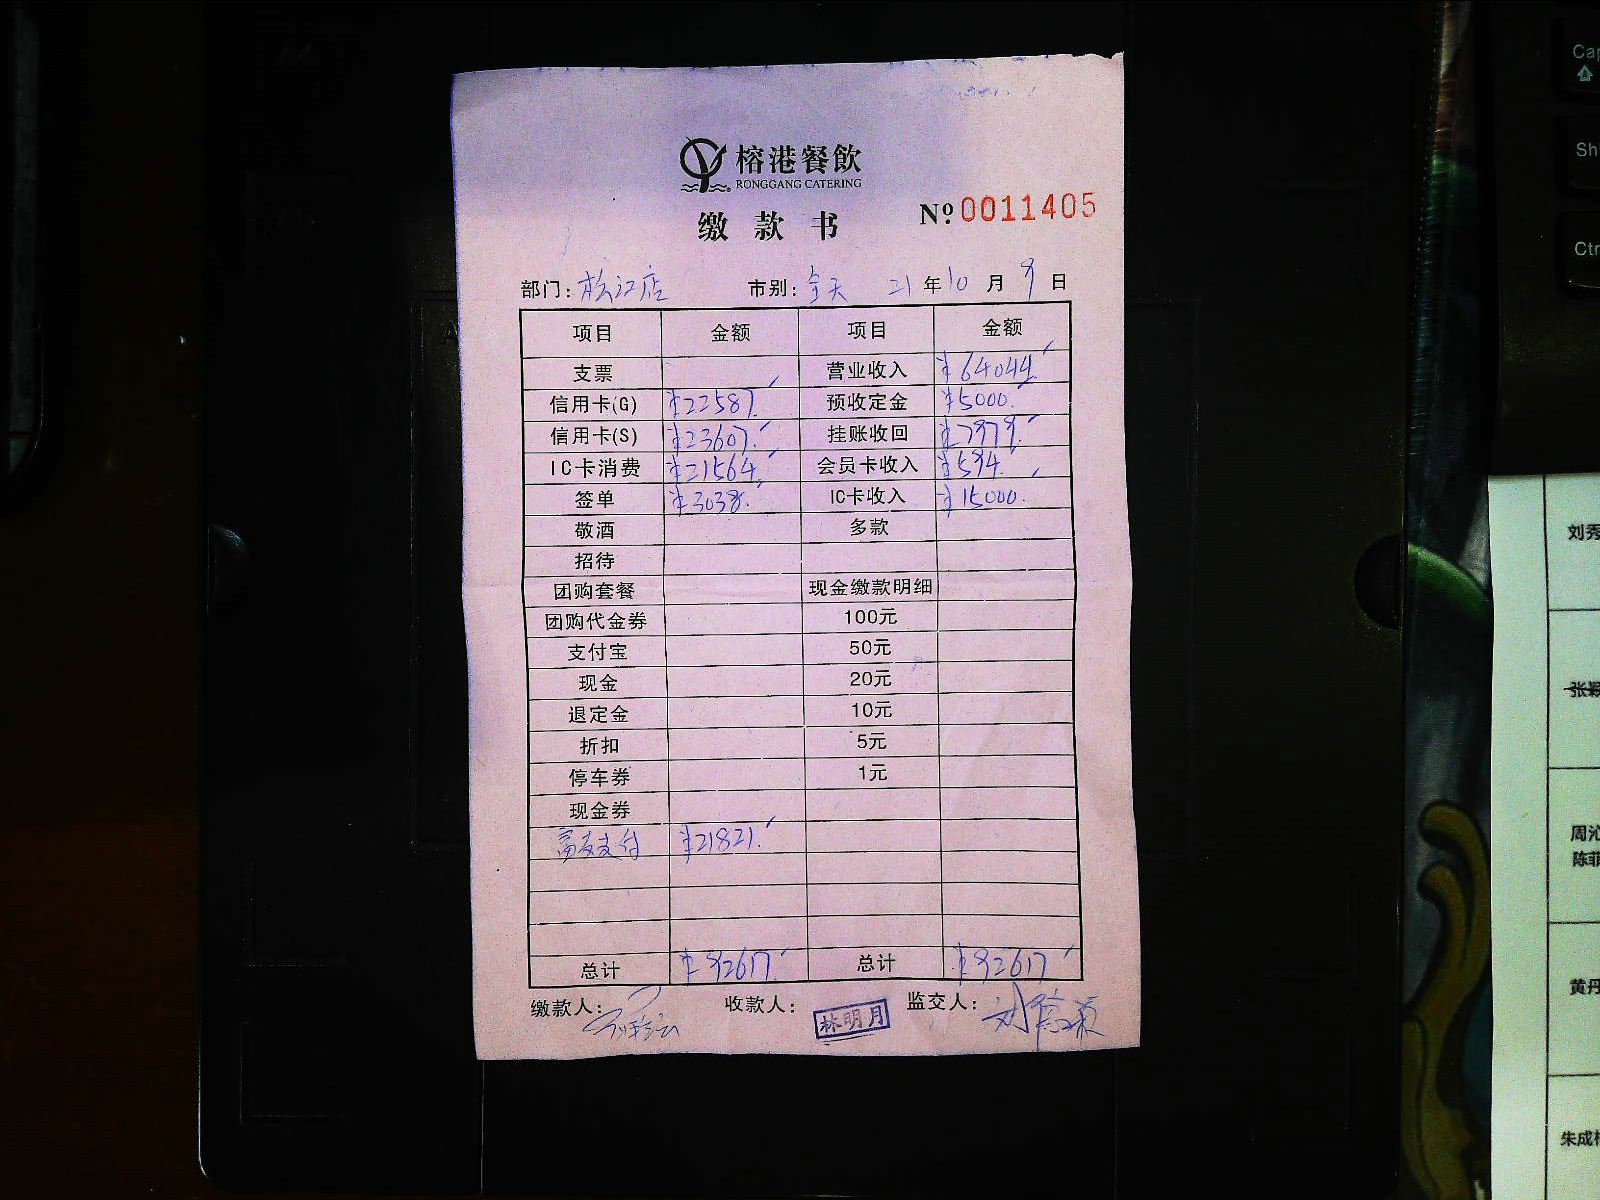 榕港餐飲
RONGGANG CATERING
缴款书 Nº 0011405
部门: 松江店 市别: 全天 21年10月9日
项目 金额 项目 金额
支票 营业收入 ¥64044.
信用卡(G) ¥22587. 预收定金 ¥5000.
信用卡(S) ¥23607. 挂账收回 ¥7979.
IC卡消费 ¥21564. 会员卡收入 ¥594.
签单 ¥3038. IC卡收入 ¥15000.
敬酒 多款
招待
团购套餐 现金缴款明细
团购代金券 100元
支付宝 50元
现金 20元
退定金 10元
折扣 5元
停车券 1元
现金券
富友支付 ¥21821.
总计 ¥92617. 总计 ¥92617
缴款人: 收款人: 林明月 监交人:
Cap
Sh
Ctr
刘秀
周沁
陈菲
黄丹
朱成